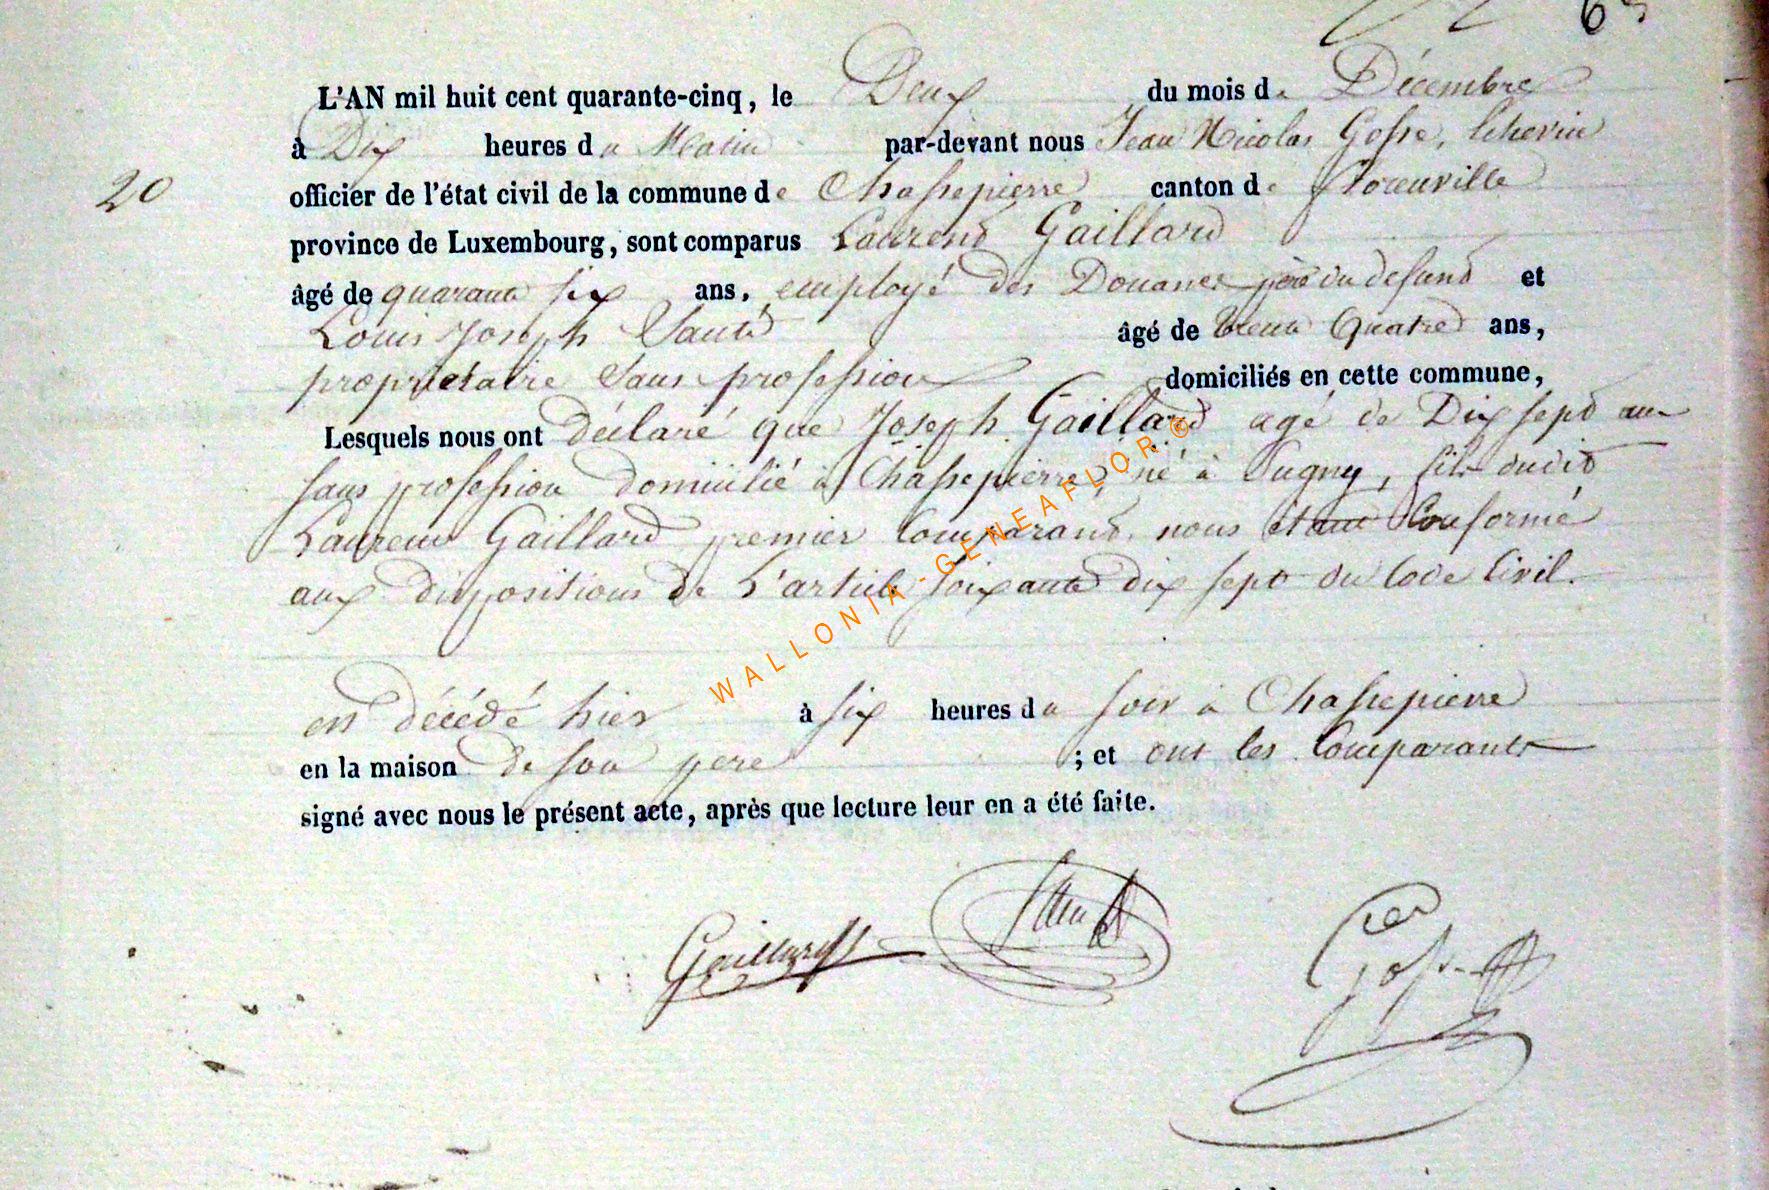 L'AN mil huit cent quarante-cinq, le Deux du mois de Décembre
à Dix heures du Matin par-devant nous Jean Nicolas Gosse, Echevin
20 officier de l'état civil de la commune de Chassepierre canton de Florenville
province de Luxembourg, sont comparus Laurend Gaillard
âgé de quarante six ans, employé des Douanes père du defund et
Louis Joseph Santé âgé de trente Quatre ans,
propriétaire Sans profession domiciliés en cette commune,
Lesquels nous ont déclaré que Joseph Gaillard agé de Dix sept ans
sans profession domicilié à Chassepierre, né à Sugny, fils dudit
Laurend Gaillard premier Comparand, nous étant Conformé
aux dispositions de L'article soixante dix sept du Code Civil.
en décédé hier à six heures du soir à Chassepierre
en la maison de son pere ; et ont les Comparants
signé avec nous le présent acte, après que lecture leur en a été faite.
Gaillard
Gosse
WALLONIA-GENEAFLOR®